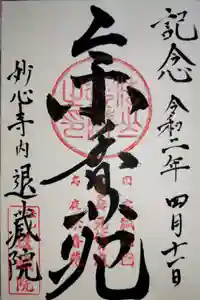 記念 令和二年 四月十一日
余香苑
妙心寺内退蔵院